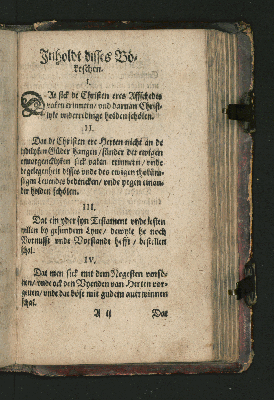 Inholdt disses Bö-
keschen.
I.
Dat sick de Christen eres Affschedes
vaken erinnern / vnd darnan Christ-
lyke vnderredinge holden schölen.
II.
Dat de Christen ere Herten nicht an de
tydtlyken Güder hangen / sünder der
sick vaken erinnern / vnde
de gelegenheit disses vnde des ewigen thokümf-
tigen Leuendes bedencken / vnde yegen einan-
der holden schölen.
III.
Dat ein yder syn Testament vnde lesten
willen by gesundem Lyue / dewyle he noch
Vornufft vnde Vorstandt hefft / bestellen
schal.
IV.
Dat men sick mit dem Negesten vorsö-
nen / vnde ock den Vyenden van Herten vor-
geuen / vnde dat böse mit gudem auerwinnen
schal.
A ij Dat